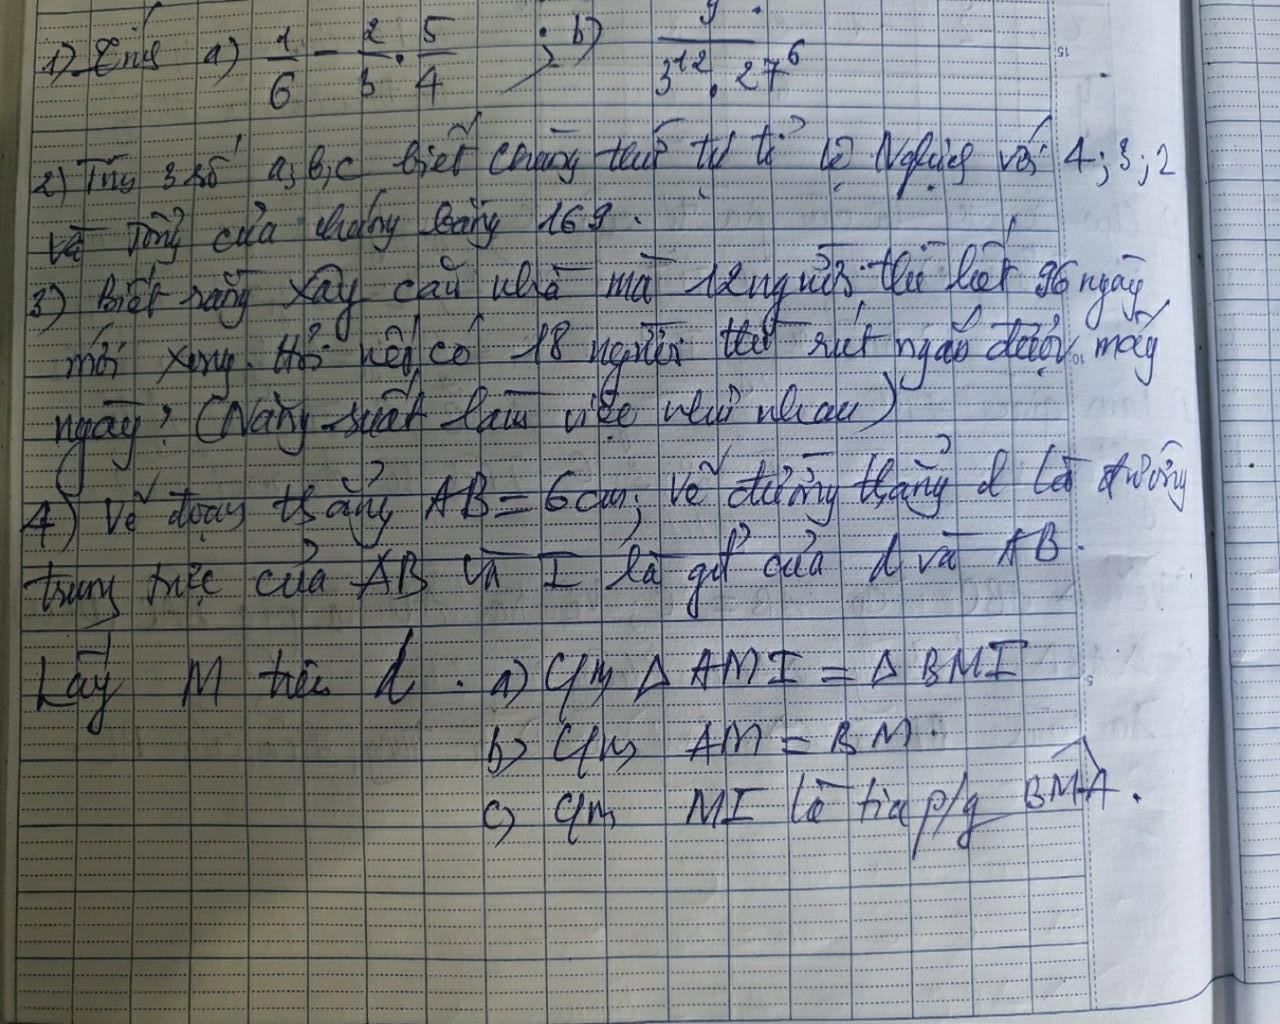 1) Tính a) 1/6 - 2/3 . 5/4 ; b) 9 . / 3^12 . 27^6
2) Tìm 3 số a, b, c biết chúng thứ tự tỉ lệ Nghịch với 4; 3; 2
và Tổng của chúng bằng 169.
3) Biết rằng xây căn nhà mà 12 người thì hết 96 ngày
mới xong. Hỏi nếu có 18 người thì rút ngắn được mấy
ngày? (Năng suất làm việc như nhau)
4) Vẽ đoạn thẳng AB = 6cm; vẽ đường thẳng d là đường
trung trực của AB và I là gđ của d và AB.
Lấy M trên d. a) C/m Δ AMI = Δ BMI
b) C/m AM = BM.
c) C/m MI là tia p/g BMA.
15
5